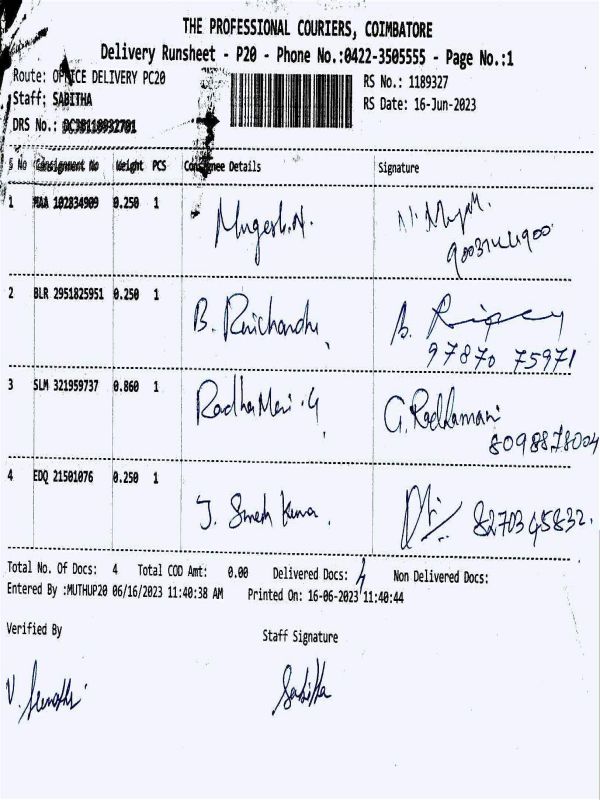 THE PROFESSIONAL COURIERS, COIMBATORE
Delivery Runsheet - P20 - Phone No.:0422-3505555 - Page No.:1
Route: OFFICE DELIVERY PC20
RS No.: 1189327
Staff: SABITHA
RS Date: 16-Jun-2023
DRS No.:
S No Consignment No Weight PCS Consignee Details Signature
1 MAA 102834909 0.250 1 Mugesh.N.
2 BLR 2951825951 0.250 1 B.
97870 75971
3 SLM 321959737 0.860 1 RadhaMani.G G.Radhamani
8098878004
4 EDQ 21501076 0.250 1 J. Suresh Kumar. 8270345832.
Total No. Of Docs: 4 Total COD Amt: 0.00 Delivered Docs: 4 Non Delivered Docs:
Entered By :MUTHUP20 06/16/2023 11:40:38 AM Printed On: 16-06-2023 11:40:44
Verified By Staff Signature
V. Sabitha